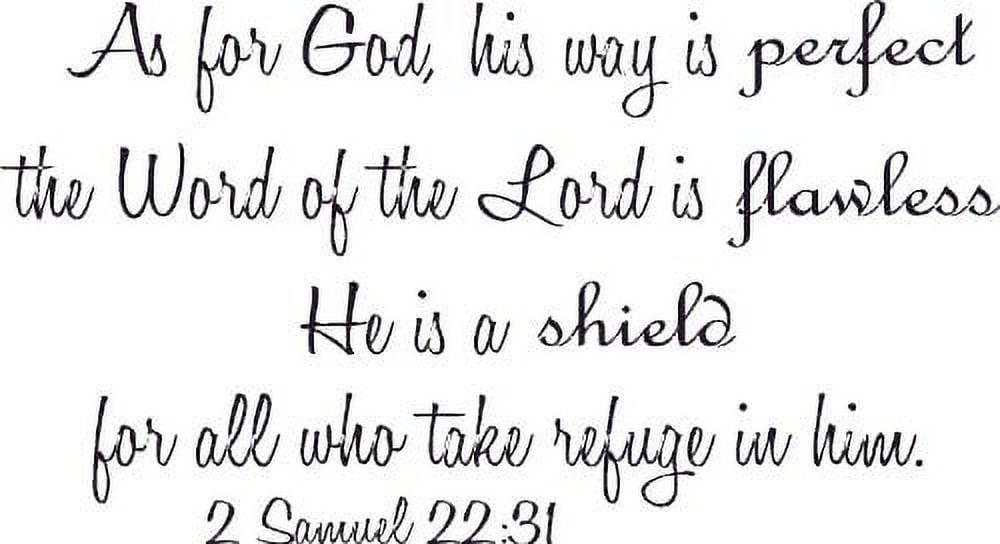 As for God, his way is perfect
the Word of the Lord is flawless
He is a shield
for all who take refuge in him.
2 Samuel 22:31